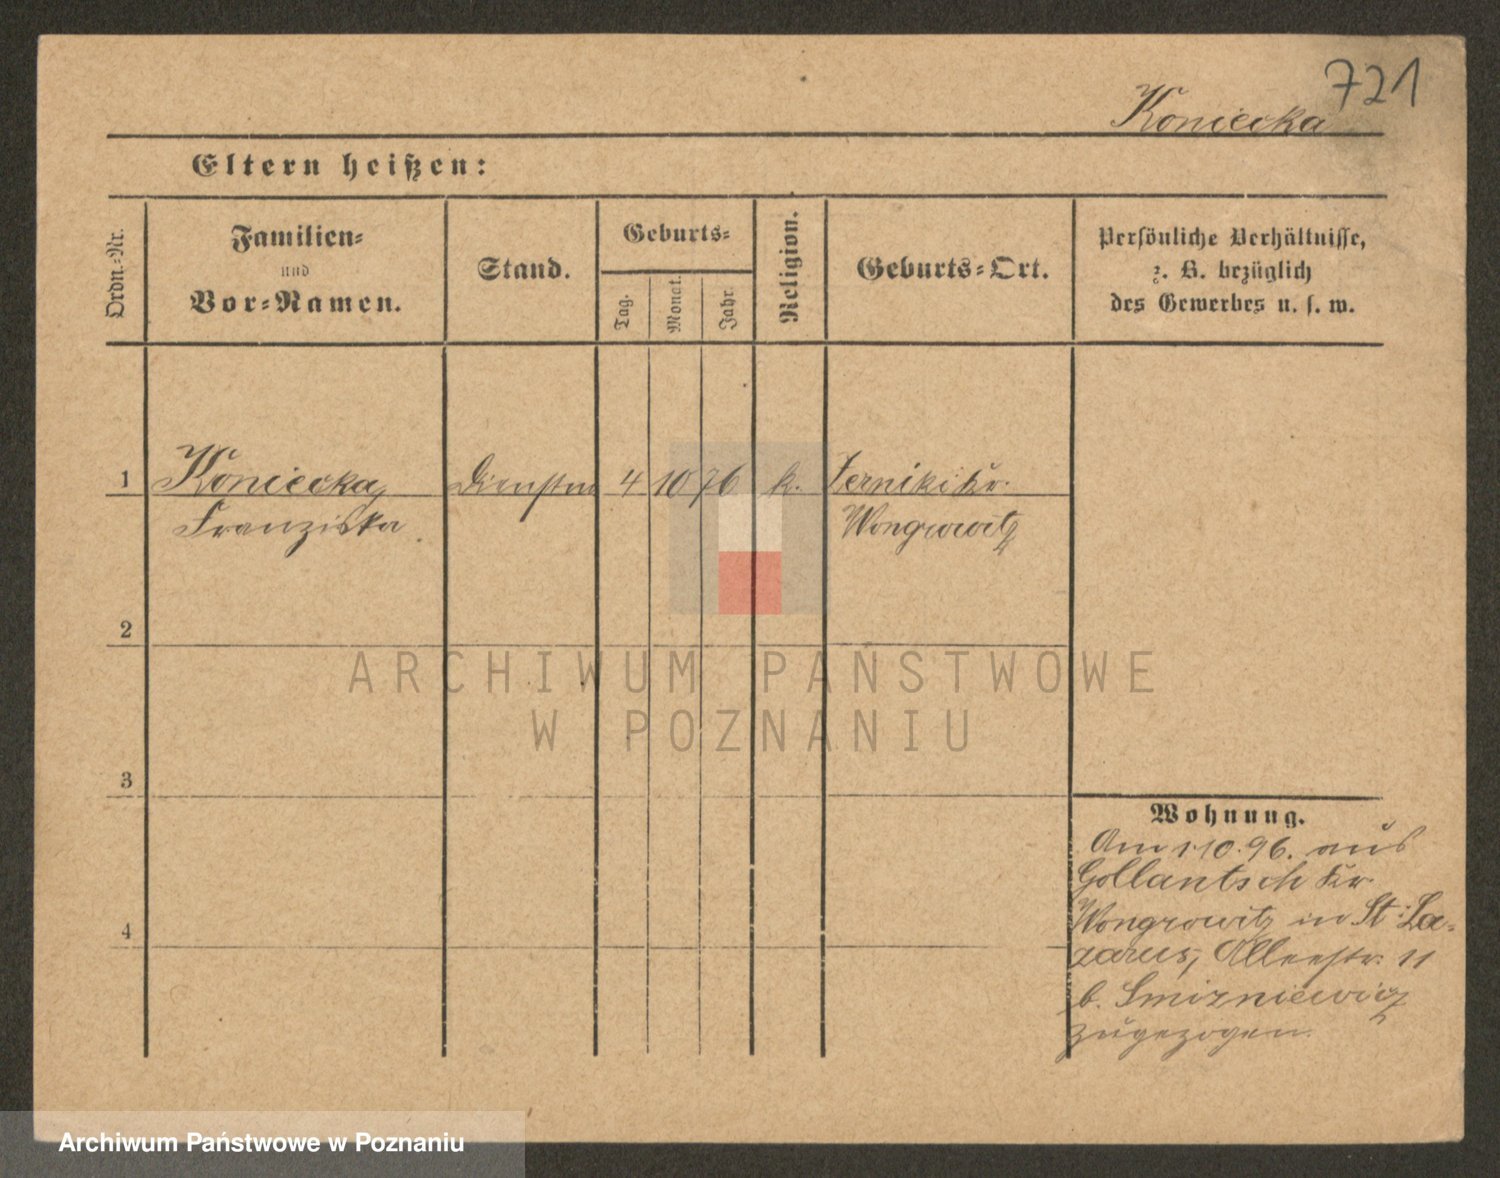 721
Koniecka
Eltern heißen:
Ordn.-Nr.
Familien-
und
Vor-Namen.
Stand.
Geburts-
Tag.
Monat.
Jahr.
Religion.
Geburts-Ort.
Persönliche Verhältnisse,
z. B. bezüglich
des Gewerbes u. s. w.
1 Koniecka, 4 10 76 k. Zerniki Kr.
Franziska Wongrowitz
2
3
4
Wohnung.
Am 1.10.96. aus
Gollantsch Kr.
Wongrowitz in St. La-
zarus, Alleestr. 11
b. Smizniewicz
zugezogen.
ARCHIWUM PAŃSTWOWE
W POZNANIU
Archiwum Państwowe w Poznaniu